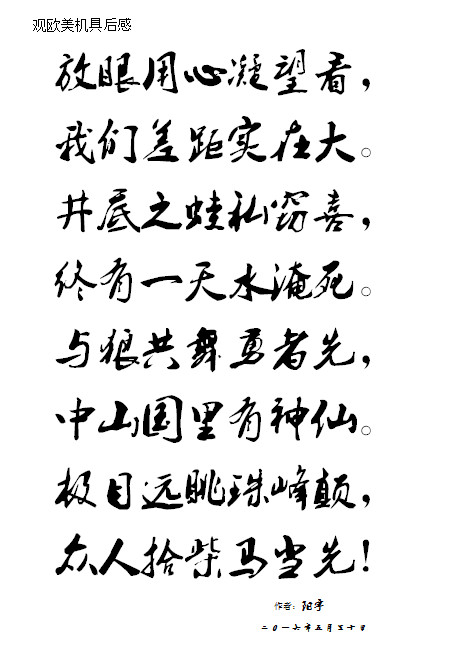 观欧美机具后感
放眼用心凝望看，
我们差距实在大。
井底之蛙私窃喜，
终有一天水淹死。
与狼共舞勇者先，
中山国里有神仙。
极目远眺珠峰颠，
众人拾柴马当先！
作者：阳宇
二〇一六年五月三十日